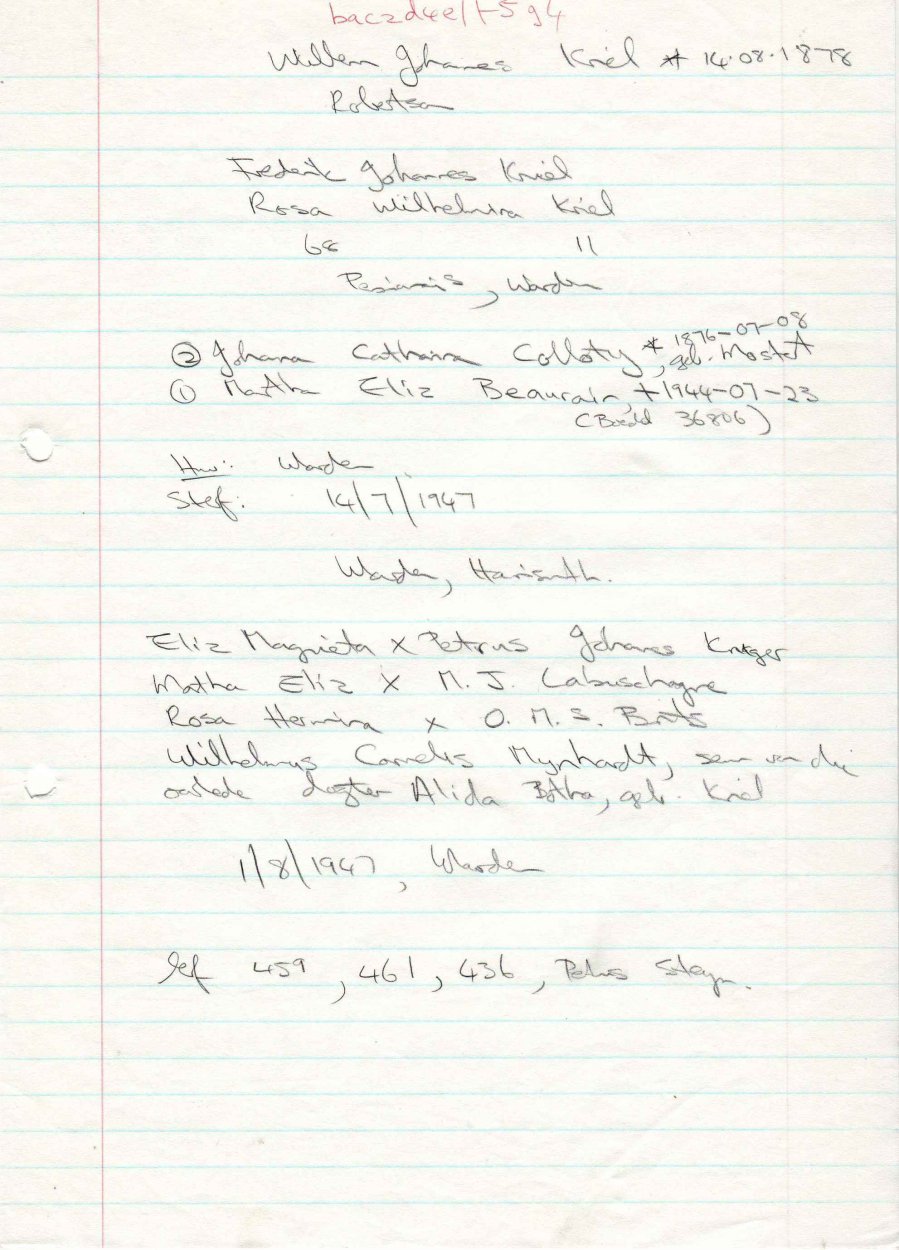 Willem Johannes Kriel * 14.08.1878
Robertson
Frederik Johannes Kriel
Rosa Wilhelmina Kriel
68 11
Warden
② Johanna Catharina Colloty, * 1876-07-08
geb. Mostert
① Martha Eliz Beaurain, + 1944-07-23
(Boedel 36806)
Huw: Warden
Sterf: 14/7/1947
Warden, Harrismith.
Eliz Magrieta x Petrus Johannes Kruger
Martha Eliz x M. J. Labuschagne
Rosa Hermina x O. M. S. Brits
Wilhelmus Cornelis Mynhardt, seun van die
oorlede dogter Alida Botha, geb. Kriel
1/8/1947, Warden
Erf 459, 461, 436, Petrus Steyn.